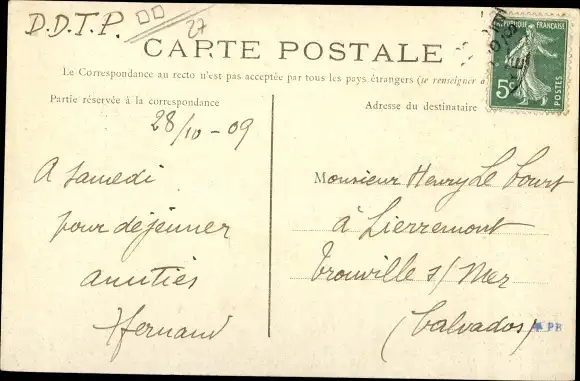 D.D.T.P.
27
CARTE POSTALE
Le Correspondance au recto n'est pas acceptée par tous les pays étrangers (se renseigner à
Partie réservée à la correspondance
Adresse du destinataire
REPUBLIQUE FRANÇAISE
5c
POSTES
28/10-09
A Samedi
pour déjeuner
amitiés
Hernand
Monsieur Henry Le Court
à Lierremont
Trouville s/ Mer
(Calvados)
PB